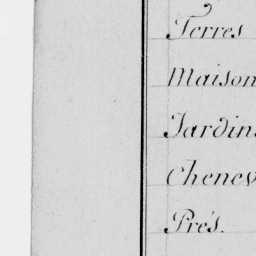 Terres
Maison
Jardins
Chenev
Prés.